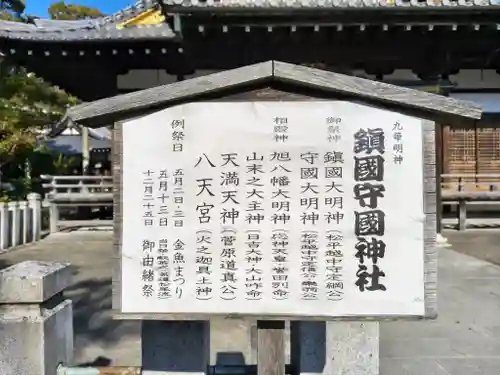 九華明神
鎮國守國神社
御祭神
鎮國大明神(松平越中守定綱公)
守國大明神(松平越中守定信公樂翁公)
相殿神
旭八幡大明神(応神天皇誉田別命)
山末之大主神(日吉大神大山咋命)
天満天神(菅原道真公)
八天宮(火之迦具土神)
例祭日
五月二日・三日 金魚まつり
五月十三日
十二月二十五日 御由緒祭